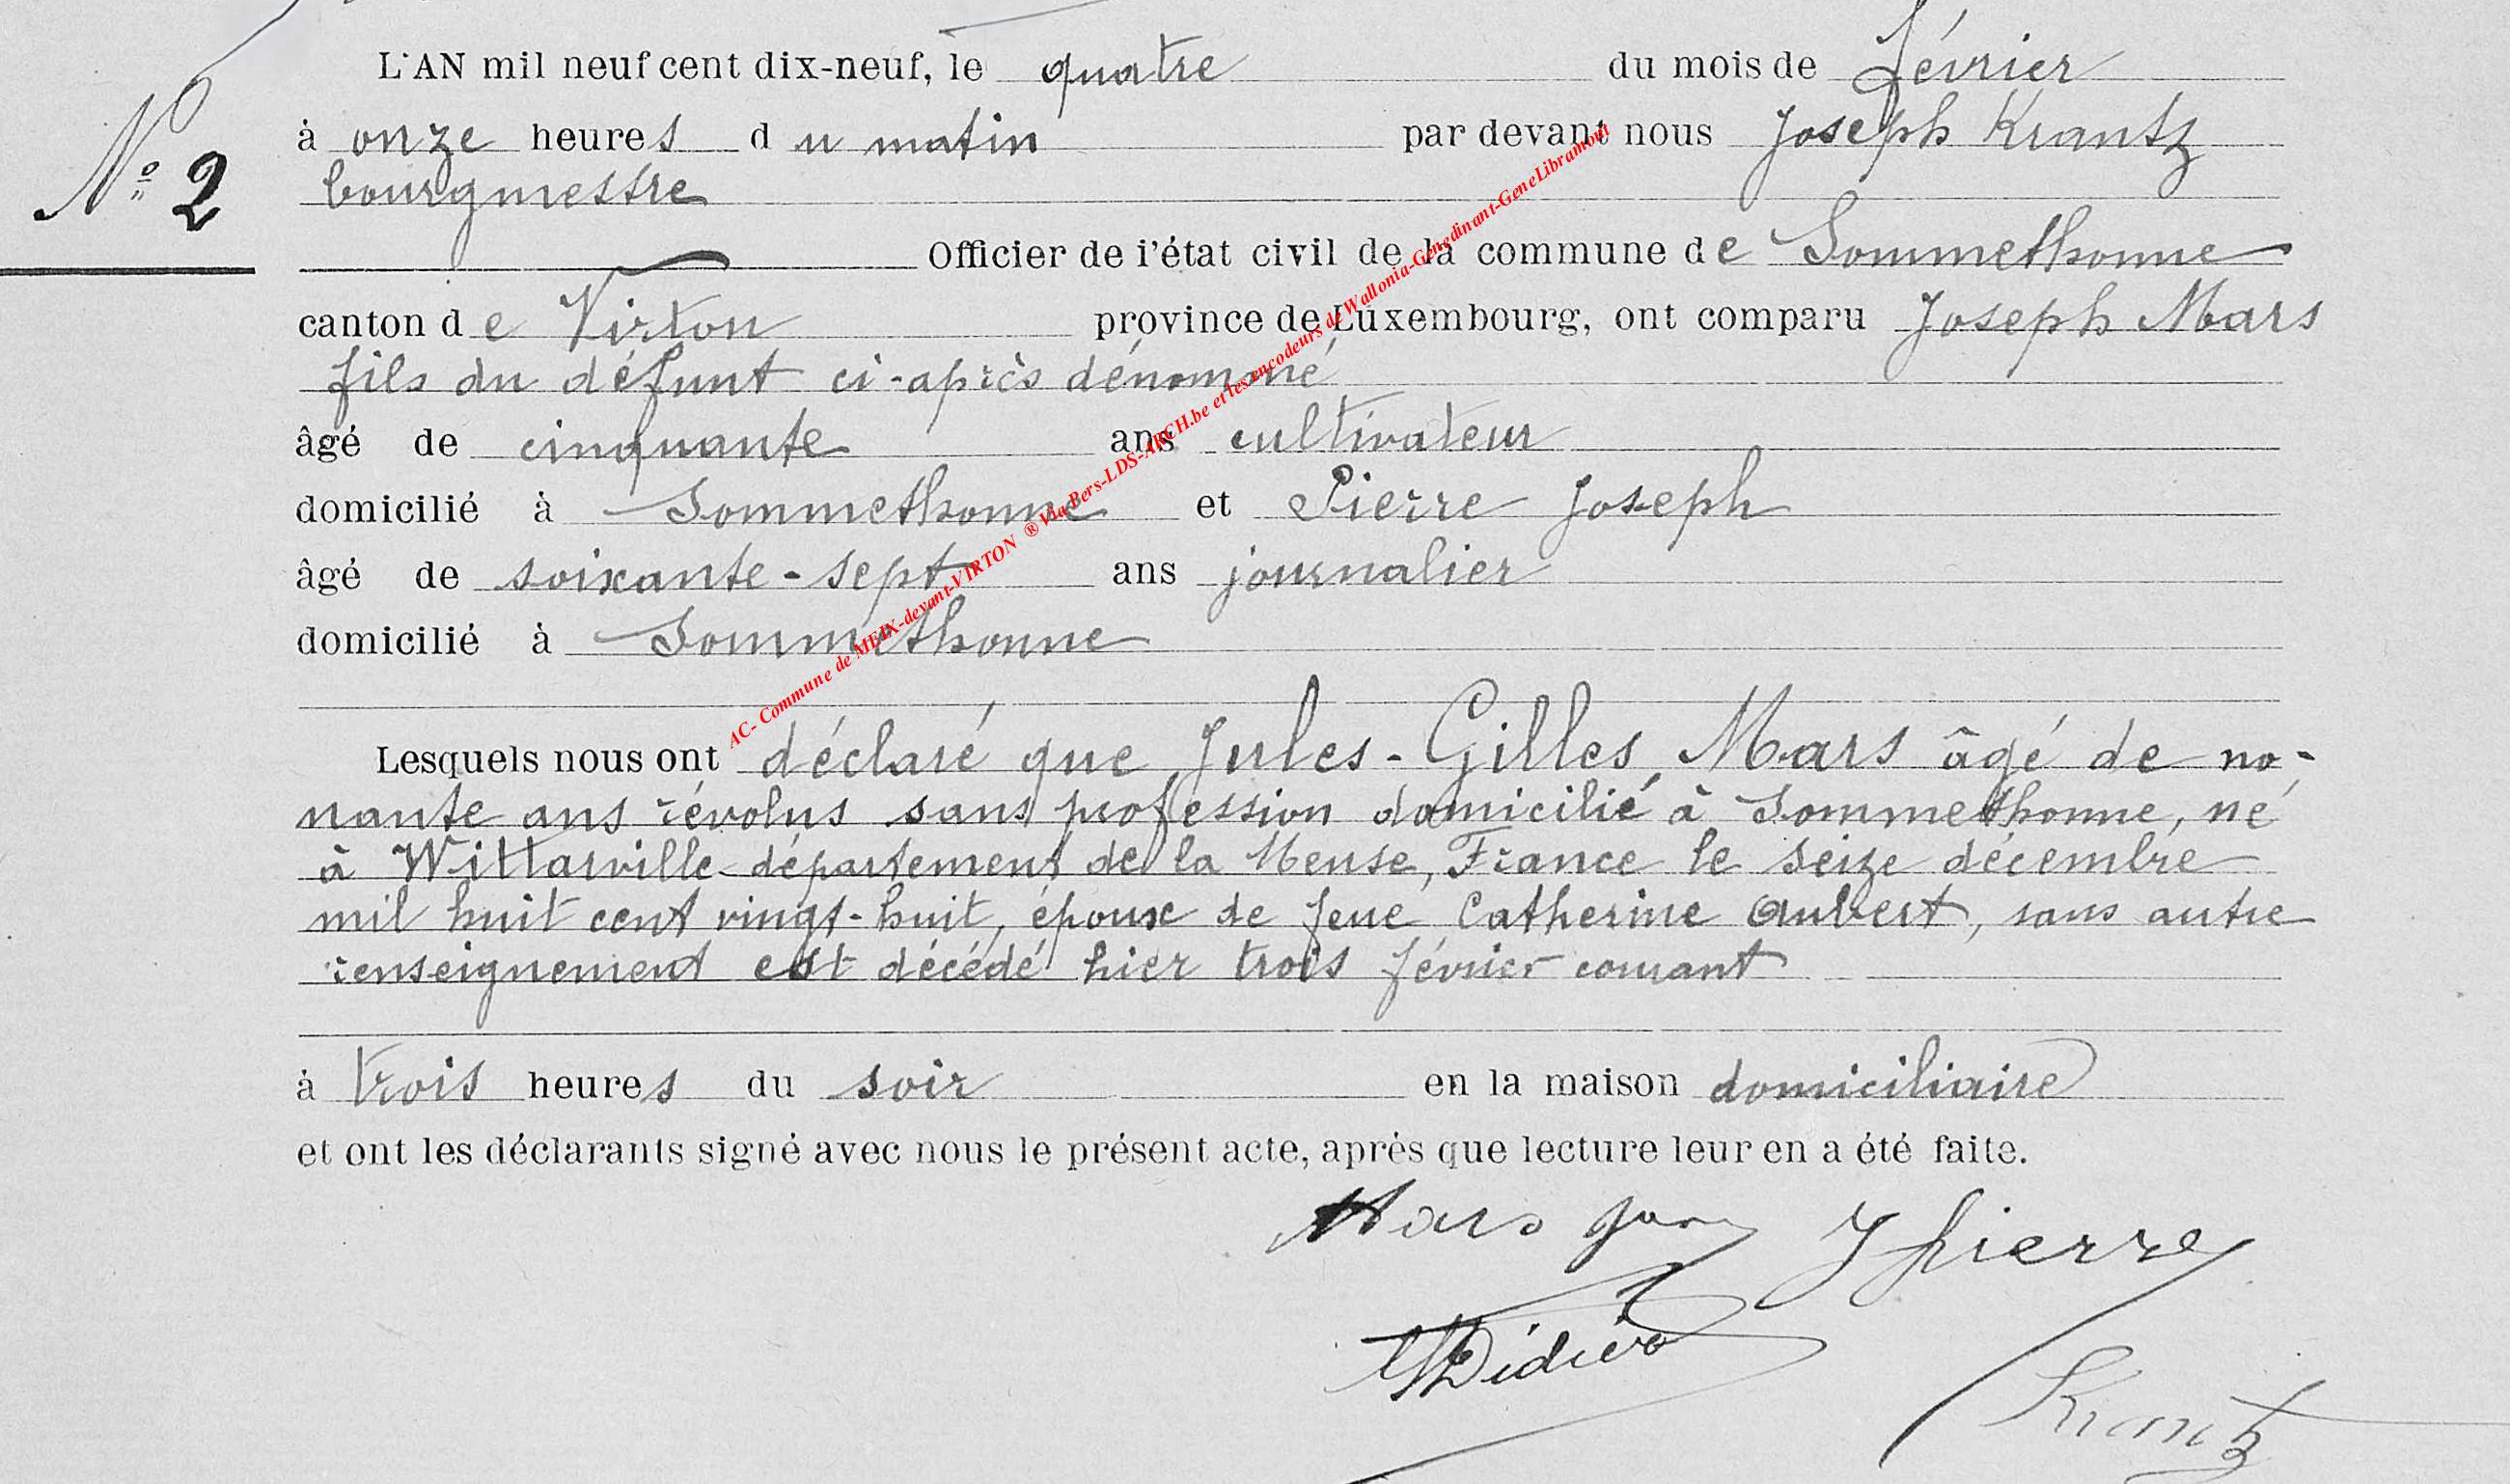 L'AN mil neuf cent dix-neuf, le quatre du mois de février
à onze heures du matin par devant nous Joseph Krantz
N° 2
bourgmestre
Officier de l'état civil de la commune de Sommethonne
canton de Virton province de Luxembourg, ont comparu Joseph Mars
fils du défunt ci-après dénommé
âgé de cinquante ans cultivateur
domicilié à Sommethonne et Pierre Joseph
âgé de soixante-sept ans journalier
domicilié à Sommethonne
Lesquels nous ont déclaré que Jules-Gilles Mars âgé de no-
nante ans révolus sans profession domicilié à Sommethonne, né
à Wittarville département de la Meuse, France le seize décembre
mil huit cent vingt-huit, époux de feue Catherine Aubert, sans autre
renseignement est décédé hier trois février courant
à trois heures du soir en la maison domiciliaire
et ont les déclarants signé avec nous le présent acte, après que lecture leur en a été faite.
Mars J Pierre
Didier
Krantz
AC- Commune de MEIX-devant-VIRTON ® Via Bers-LDS-ARCH.be et les encodeurs de Wallonia-Genedinant-GeneLibramont